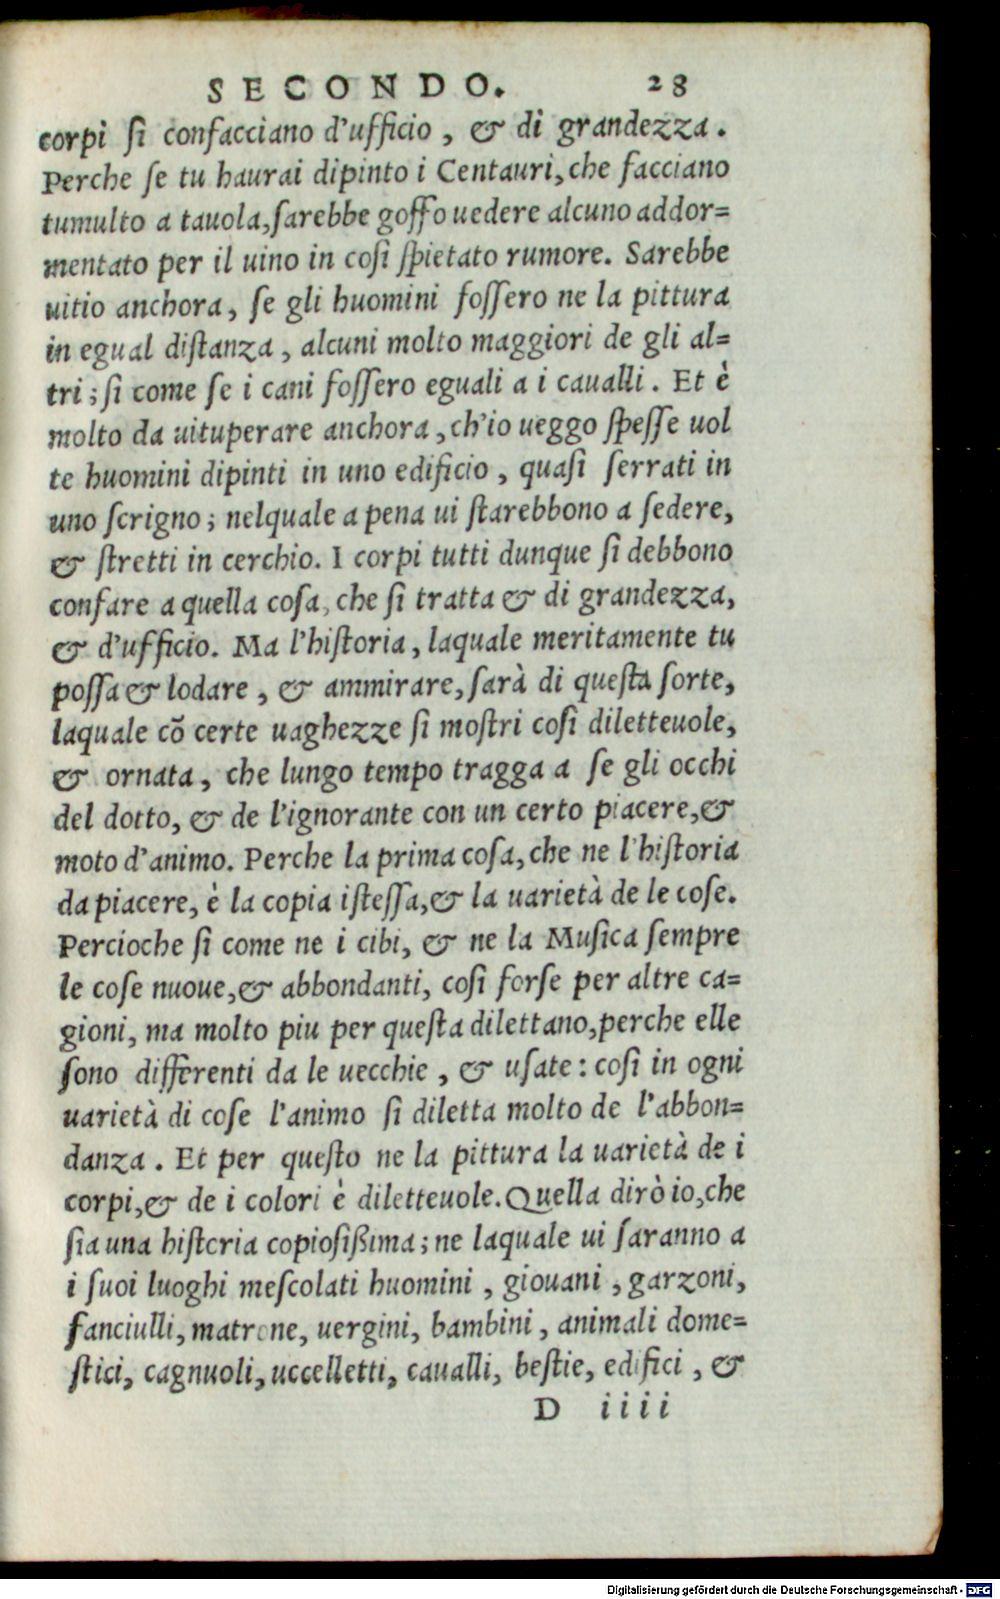 SECONDO. 28
corpi ſi confacciano d'ufficio, & di grandezza.
Perche ſe tu haurai dipinto i Centauri, che facciano
tumulto a tauola, ſarebbe goffo uedere alcuno addor=
mentato per il uino in coſi ſpietato rumore. Sarebbe
uitio anchora, ſe gli huomini foſſero ne la pittura
in egual diſtanza, alcuni molto maggiori de gli al=
tri; ſi come ſe i cani foſſero eguali a i caualli. Et è
molto da uituperare anchora, ch'io ueggo ſpeſſe uol
te huomini dipinti in uno edificio, quaſi ſerrati in
uno ſcrigno; nelquale a pena ui ſtarebbono a ſedere,
& ſtretti in cerchio. I corpi tutti dunque ſi debbono
confare a quella coſa, che ſi tratta & di grandezza,
& d'ufficio. Ma l'hiſtoria, laquale meritamente tu
poſſa & lodare, & ammirare, ſarà di queſta ſorte,
laquale cõ certe uaghezze ſi moſtri coſi diletteuole,
& ornata, che lungo tempo tragga a ſe gli occhi
del dotto, & de l'ignorante con un certo piacere, &
moto d'animo. Perche la prima coſa, che ne l'hiſtoria
da piacere, è la copia iſteſſa, & la uarietà de le coſe.
Percioche ſi come ne i cibi, & ne la Muſica ſempre
le coſe nuoue, & abbondanti, coſi forſe per altre ca=
gioni, ma molto piu per queſta dilettano, perche elle
ſono differenti da le uecchie, & uſate: coſi in ogni
uarietà di coſe l'animo ſi diletta molto de l'abbon=
danza. Et per queſto ne la pittura la uarietà de i
corpi, & de i colori è diletteuole. Quella dirò io, che
ſia una hiſtoria copioſiſſima; ne laquale ui ſaranno a
i ſuoi luoghi meſcolati huomini, giouani, garzoni,
fanciulli, matrone, uergini, bambini, animali dome=
ſtici, cagnuoli, uccelletti, caualli, beſtie, edifici, &
D iiii
Digitalisierung gefördert durch die Deutsche Forschungsgemeinschaft - DFG